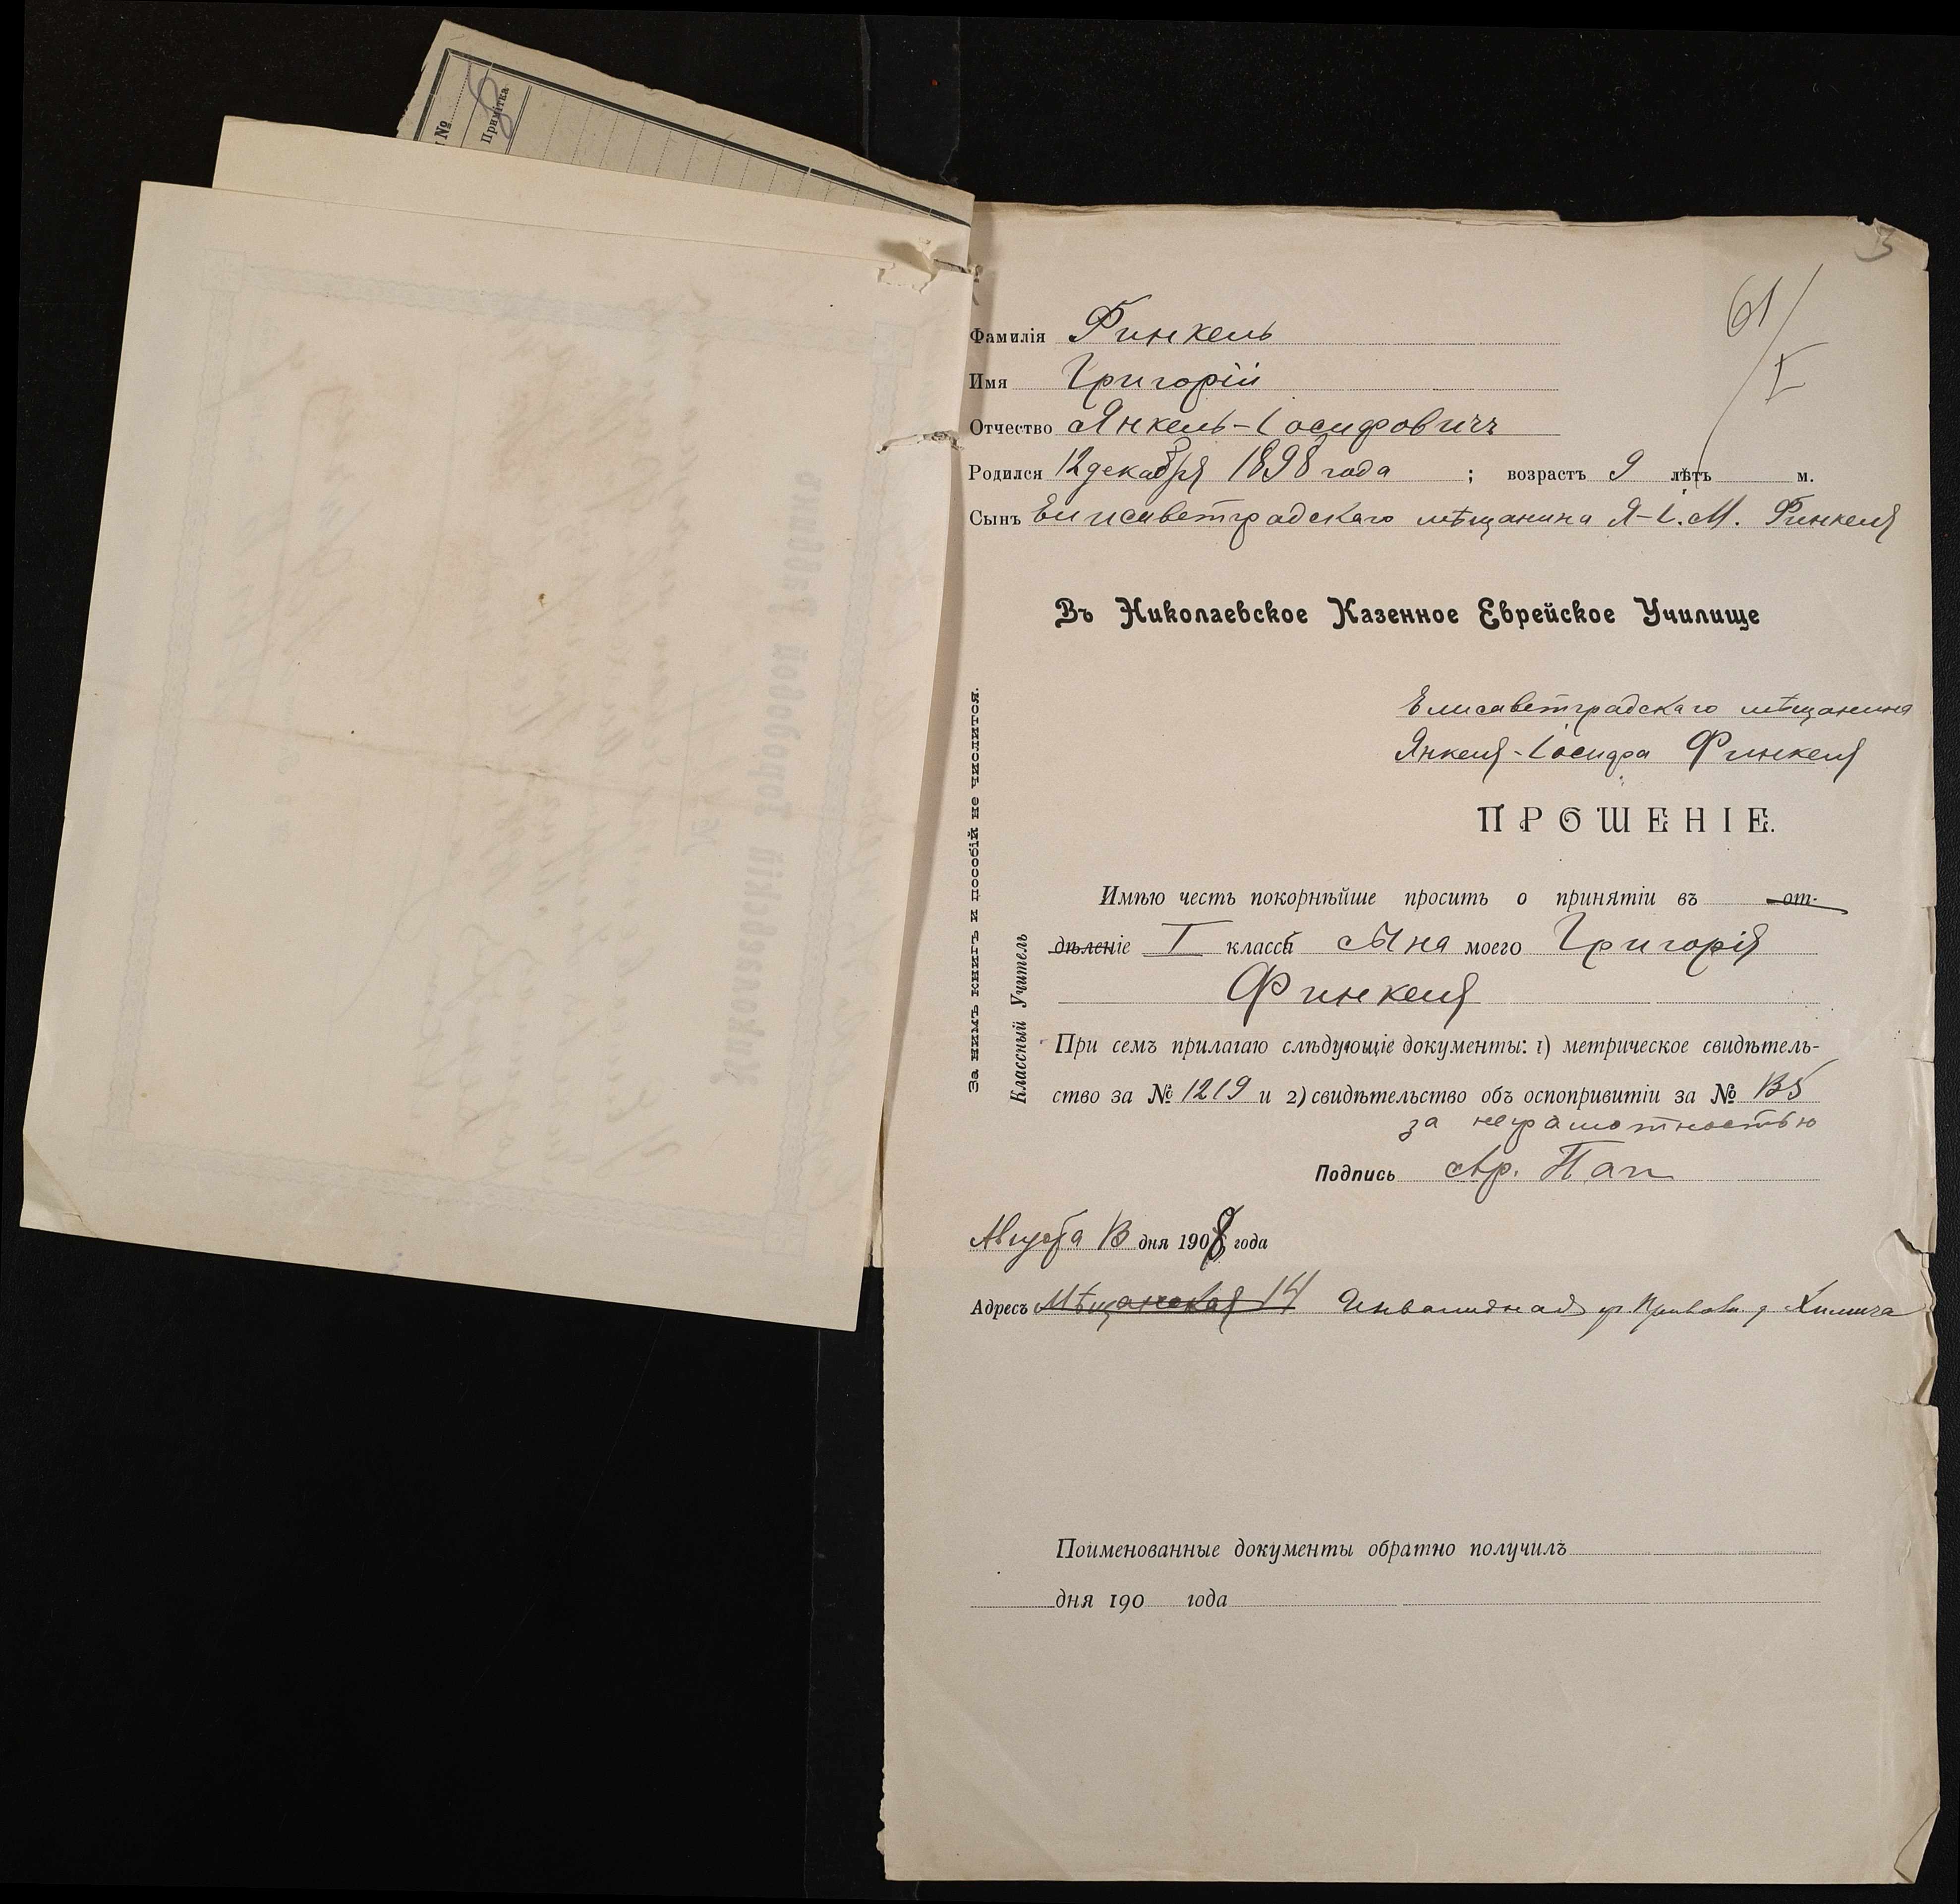 №
Примѣтка
3
61/I
Фамилія Финкель
Имя Григорій
Отчество Янкель-Іосифовичъ
Родился 12 декабря 1898 года ; возрастъ 9 лѣтъ м.
Сынъ Елисаветградскаго мѣщанина Я-І. М. Финкеля
Въ Николаевское Казенное Еврейское Училище
Елисаветградскаго мѣщанина
Янкеля-Іосифа Финкеля
ПРОШЕНІЕ.
Имѣю честь покорнѣйше просить о принятіи въ от-
дѣленіе I класса сына моего Григорія
Финкеля
При семъ прилагаю слѣдующіе документы: 1) метрическое свидѣтель-
ство за № 1219 и 2) свидѣтельство объ оспопривитіи за №
за неграмотностью
Подпись Ар. Пап
Августа 13 дня 1908 года
Адресъ Мѣщанская 14 Инвалидная
Поименованные документы обратно получилъ
дня 190 года
За нимъ книгъ и пособій не числится.
Классный Учитель
Николаевскій Городовой Раввинъ
№